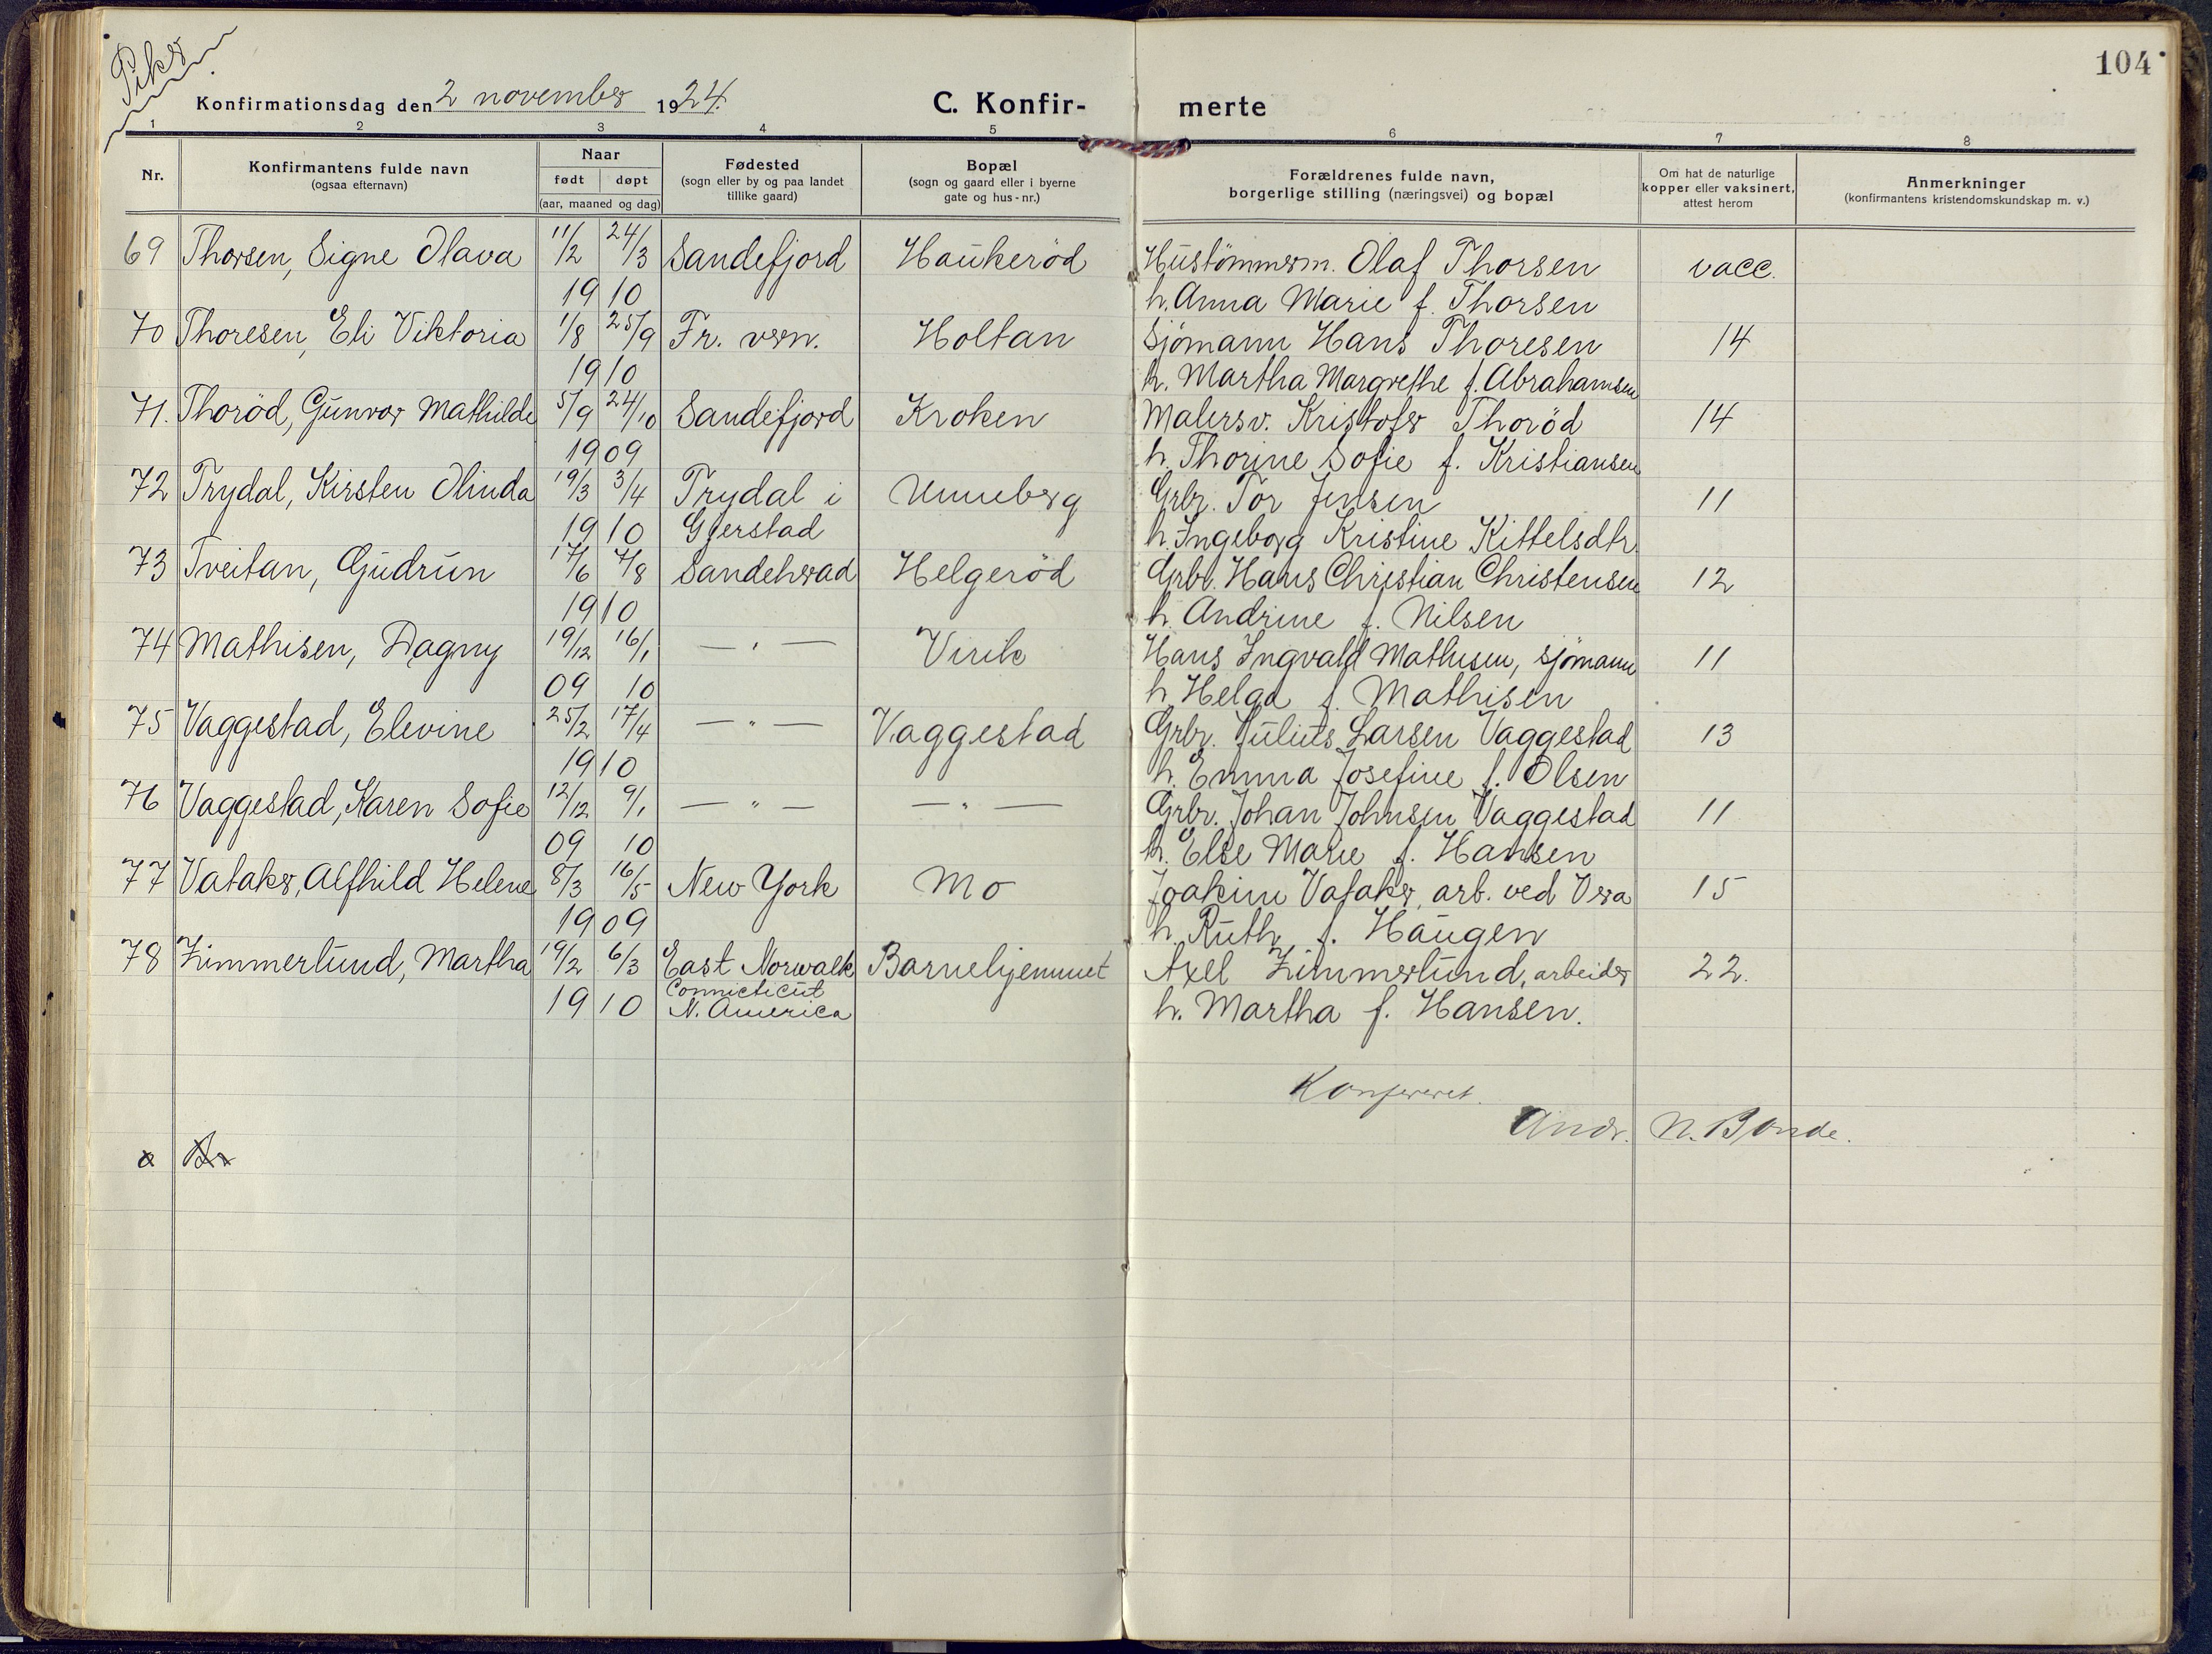 Piker
104
Konfirmationsdag den 2 november 1924.
C. Konfir- merte
1 2 3 4 5 6 7 8
Nr.
Konfirmantens fulde navn
(ogsaa efternavn)
Naar
født døpt
(aar, maaned og dag)
Fødested
(sogn eller by og paa landet
tillike gaard)
Bopæl
(sogn og gaard eller i byerne
gate og hus-nr.)
Forældrenes fulde navn,
borgerlige stilling (næringsvei) og bopæl
Om hat de naturlige
kopper eller vaksinert,
attest herom
Anmerkninger
(konfirmantens kristendomskundskap m. v.)
69 Thorsen, Signe Olava 11/2 24/3 Sandefjord Haukerød Hustømmerm. Olaf Thorsen vacc.
19 10 h. Anna Marie f. Thorsen
70 Thoresen, Eli Viktoria 1/8 25/9 Fr. vern. Holtan Sjømann Hans Thoresen 14
19 10 h. Martha Margrethe f. Abrahamsen
71. Thorød, Gunvor Mathilde 5/9 24/10 Sandefjord Kroken Malersv. Kristofer Thorød 14
19 09 h. Thorine Sofie f. Kristiansen
72 Trydal, Kirsten Olinda 19/3 3/4 Trydal i Unneberg Grbr. Tor Jensen 11
19 10 Gjerstad h. Ingeborg Kristine Kittelsdtr.
73 Tveitan, Gudrun 17/6 7/8 Sandeherad Helgerød Grbr. Hans Christian Christensen 12
19 10 h. Andrine f. Nilsen
74 Mathisen, Dagny 19/12 16/1 — " — Virik Hans Ingvald Mathisen, sjømann 11
09 10 h. Helga f. Mathisen
75 Vaggestad, Elevine 25/2 17/4 — " — Vaggestad Grbr. Julius Larsen Vaggestad 13
19 10 h. Emma Josefine f. Olsen
76 Vaggestad, Karen Sofie 12/12 9/1 — " — — " — Grbr. Johan Johnsen Vaggestad 11
09 10 h. Else Marie f. Hansen
77 Vataker, Alfhild Helene 8/3 16/5 New York Mo Joakim Vataker, arb. ved Vera 15
19 09 h. Ruth f. Haugen
78 Zimmerlund, Martha 19/2 6/3 East Norwalk Barnehjemmet Axel Zimmerlund, arbeider 22.
Connicticut
19 10 N. America h. Martha f. Hansen.
Konfereret.
Andr. N. Bonde.